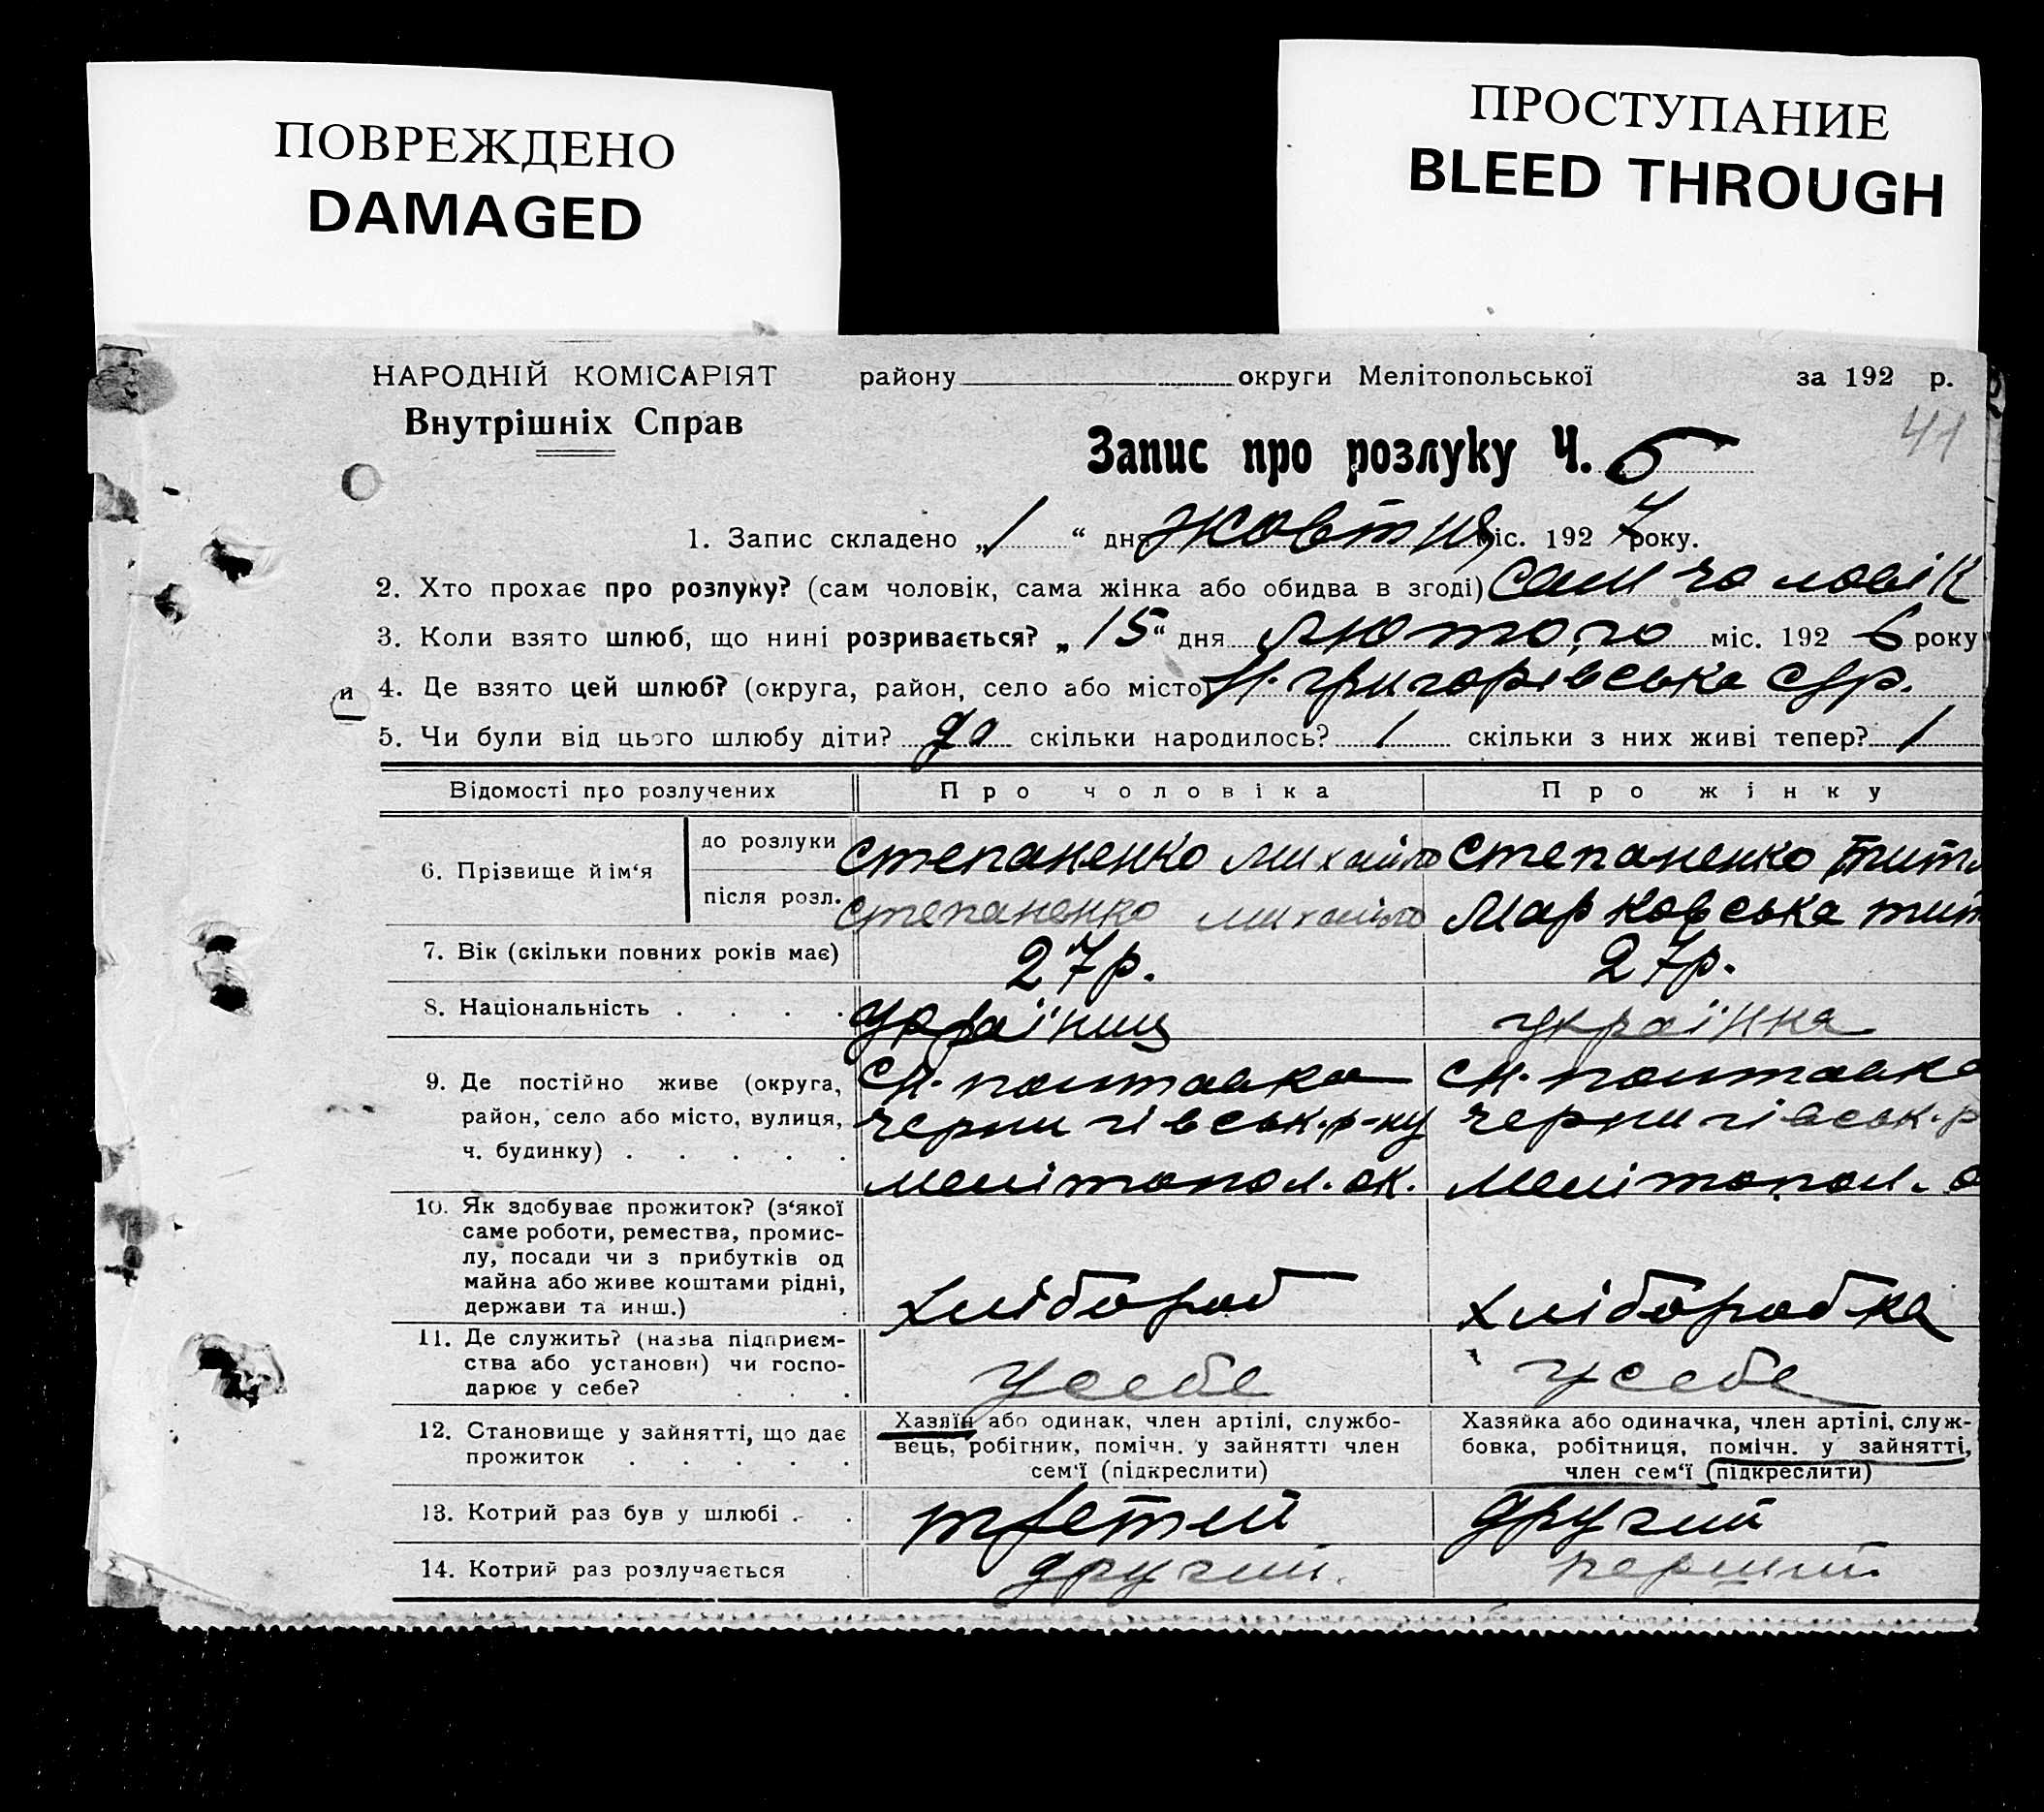 ПОВРЕЖДЕНО
DAMAGED
ПРОСТУПАНИЕ
BLEED THROUGH
НАРОДНІЙ КОМІСАРІЯТ
Внутрішніх Справ
району округи Мелітопольської за 192 р.
41
Запис про розлуку Ч. 6
1. Запис складено „ 1 “ дня жовтня міс. 192 7 року.
2. Хто прохає про розлуку? (сам чоловік, сама жінка або обидва в згоді) сам чоловік
3. Коли взято шлюб, що нині розривається? „ 15 “ дня лютого міс. 192 6 року
и 4. Де взято цей шлюб? (округа, район, село або місто) Н. григорівська с/р.
5. Чи були від цього шлюбу діти? да скільки народилось? 1 скільки з них живі тепер? 1
Відомості про розлучених Про чоловіка Про жінку
6. Прізвище й ім‘я
до розлуки степаненко михайло степаненко
після розл. степаненко михайло Марковська
7. Вік (скільки повних років має) 27р. 27р.
8. Національність . . . . українць українка
9. Де постійно живе (округа,
район, село або місто, вулиця,
ч. будинку) . . . . .
см. полтавка
чернигівськ. р-ну
мелітопол. ок.
см. полтавка
чернигівськ. р
мелітопол. о
10. Як здобуває прожиток? (з‘якої
саме роботи, ремества, промис-
лу, посади чи з прибутків од
майна або живе коштами рідні,
держави та инш.) .
хлібороб хліборобка
11. Де служить? (назва підприєм-
ства або установи) чи госпо-
дарює у себе? . . .
усебе усебе
12. Становище у зайнятті, що дає
прожиток . . . . .
Хазяїн або одинак, член артілі, службо-
вець, робігник, помічн. у зайнятті член
сем‘ї (підкреслити)
Хазяйка або одиначка, член артілі, служ-
бовка, робітниця, помічн. у зайнятті,
член сем‘ї (підкреслити)
13. Котрий раз був у шлюбі . . третий другий
14. Котрий раз розлучається . другий. первий.